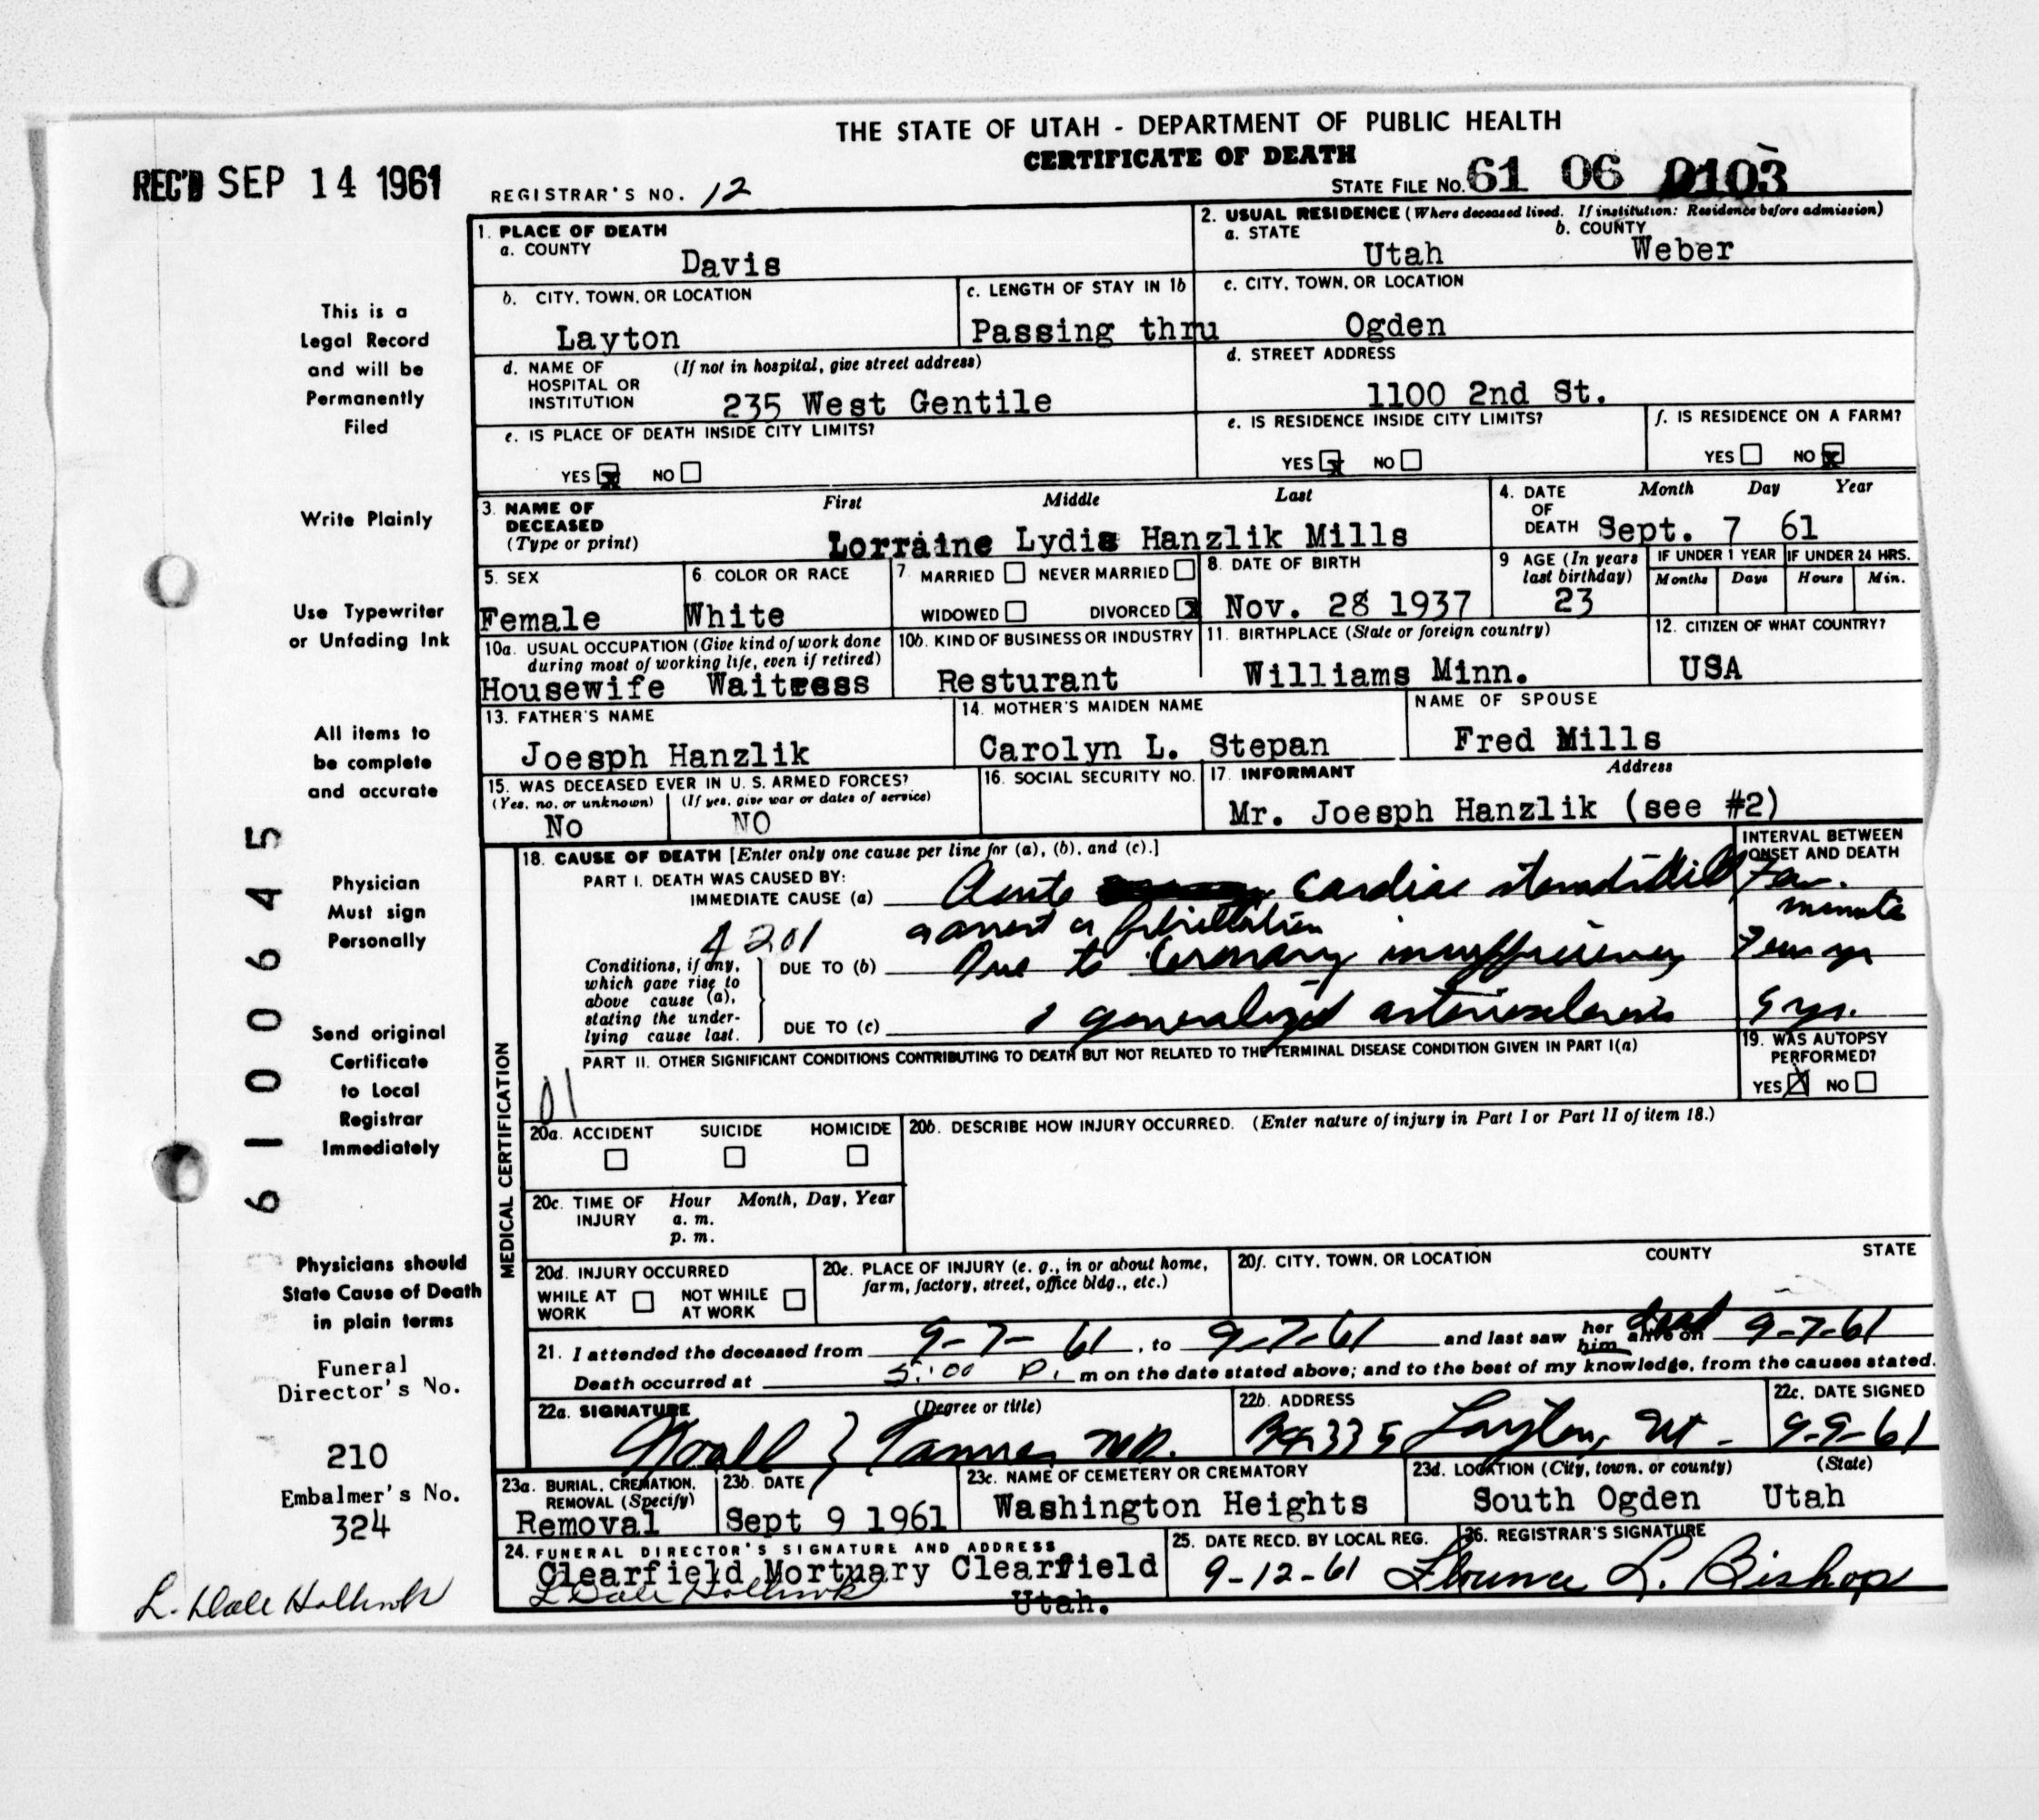 THE STATE OF UTAH - DEPARTMENT OF PUBLIC HEALTH
CERTIFICATE OF DEATH
REC'D SEP 14 1961
REGISTRAR'S NO. 12
STATE FILE NO. 61 06 0103
1. PLACE OF DEATH
a. COUNTY
Davis
2. USUAL RESIDENCE (Where deceased lived. If institution: Residence before admission)
a. STATE
Utah
b. COUNTY
Weber
b. CITY, TOWN, OR LOCATION
Layton
c. LENGTH OF STAY IN 1b
Passing thru
c. CITY, TOWN, OR LOCATION
Ogden
d. NAME OF HOSPITAL OR INSTITUTION
(If not in hospital, give street address)
235 West Gentile
d. STREET ADDRESS
1100 2nd St.
e. IS PLACE OF DEATH INSIDE CITY LIMITS?
YES x NO
e. IS RESIDENCE INSIDE CITY LIMITS?
YES x NO
f. IS RESIDENCE ON A FARM?
YES NO x
3. NAME OF DECEASED (Type or print)
First Middle Last
Lorraine Lydia Hanzlik Mills
4. DATE OF DEATH
Month Day Year
Sept. 7 61
5. SEX
Female
6. COLOR OR RACE
White
7. MARRIED NEVER MARRIED
WIDOWED DIVORCED x
8. DATE OF BIRTH
Nov. 28 1937
9 AGE (In years last birthday)
23
IF UNDER 1 YEAR
Months Days
IF UNDER 24 HRS.
Hours Min.
10a. USUAL OCCUPATION (Give kind of work done during most of working life, even if retired)
Housewife Waitress
10b. KIND OF BUSINESS OR INDUSTRY
Resturant
11. BIRTHPLACE (State or foreign country)
Williams Minn.
12. CITIZEN OF WHAT COUNTRY?
USA
13. FATHER'S NAME
Joesph Hanzlik
14. MOTHER'S MAIDEN NAME
Carolyn L. Stepan
NAME OF SPOUSE
Fred Mills
15. WAS DECEASED EVER IN U. S. ARMED FORCES?
(Yes, no, or unknown) (If yes, give war or dates of service)
No NO
16. SOCIAL SECURITY NO.
17. INFORMANT Address
Mr. Joesph Hanzlik (see #2)
MEDICAL CERTIFICATION
18. CAUSE OF DEATH [Enter only one cause per line for (a), (b), and (c).]
INTERVAL BETWEEN ONSET AND DEATH
PART I. DEATH WAS CAUSED BY:
IMMEDIATE CAUSE (a) Acute Cardiac standstill
Few minute
arrest or fibrillation
4201
Conditions, if any, which gave rise to above cause (a), stating the underlying cause last.
DUE TO (b) Due to Coronary insufficiency
Few yr
DUE TO (c) generalized arteriosclerosis
5 yrs.
PART II. OTHER SIGNIFICANT CONDITIONS CONTRIBUTING TO DEATH BUT NOT RELATED TO THE TERMINAL DISEASE CONDITION GIVEN IN PART I(a)
01
19. WAS AUTOPSY PERFORMED?
YES X NO
20a. ACCIDENT SUICIDE HOMICIDE
20b. DESCRIBE HOW INJURY OCCURRED. (Enter nature of injury in Part I or Part II of item 18.)
20c. TIME OF INJURY
Hour Month, Day, Year
a. m.
p. m.
20d. INJURY OCCURRED
WHILE AT WORK NOT WHILE AT WORK
20e. PLACE OF INJURY (e. g., in or about home, farm, factory, street, office bldg., etc.)
20f. CITY, TOWN, OR LOCATION COUNTY STATE
21. I attended the deceased from 9-7-61, to 9-7-61 and last saw her him alive on dead 9-7-61
Death occurred at 5:00 P. m on the date stated above; and to the best of my knowledge, from the causes stated.
22a. SIGNATURE (Degree or title)
Noall Z Tanner MD.
22b. ADDRESS
Bx 335 Layton, Ut.
22c. DATE SIGNED
9-9-61
23a. BURIAL, CREMATION, REMOVAL (Specify)
Removal
23b. DATE
Sept 9 1961
23c. NAME OF CEMETERY OR CREMATORY
Washington Heights
23d. LOCATION (City, town, or county) (State)
South Ogden Utah
24. FUNERAL DIRECTOR'S SIGNATURE AND ADDRESS
Clearfield Mortuary Clearfield
Utah.
L Dale
25. DATE RECD. BY LOCAL REG.
9-12-61
26. REGISTRAR'S SIGNATURE
Florence L. Bishop
This is a
Legal Record
and will be
Permanently
Filed
Write Plainly
Use Typewriter
or Unfading Ink
All items to
be complete
and accurate
Physician
Must sign
Personally
Send original
Certificate
to Local
Registrar
Immediately
Physicians should
State Cause of Death
in plain terms
Funeral
Director's No.
210
Embalmer's No.
324
L. Dale
6100645